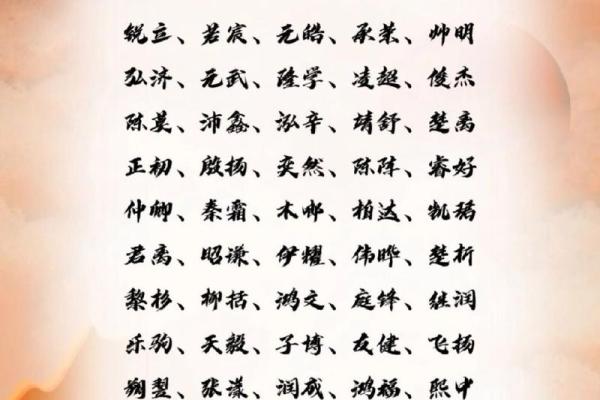 锐立、若宸、元皓、承荣、帅明
弘济、元武、隆学、凌超、俊杰
陈莫、沛鑫、泓辛、靖舒、楚离
正初、殷扬、奕然、陈阵、睿好
仲卿、秦霜、木郎、柏达、凯琋
君离、昭谦、伊耀、伟晔、楚折
黎杉、柳括、鸿文、庭锋、继润
乐驹、天毅、子博、友健、飞扬
翌、张漾、润成、鸿福、熙中